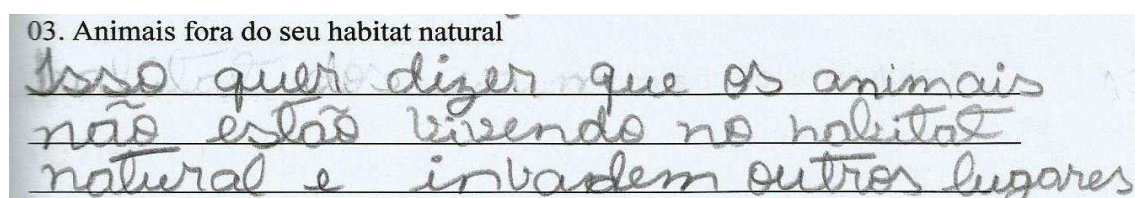 03. Animais fora do seu habitat natural
Isso quer dizer que os animais
não estão vivendo no habitat
natural e invadem outros lugares